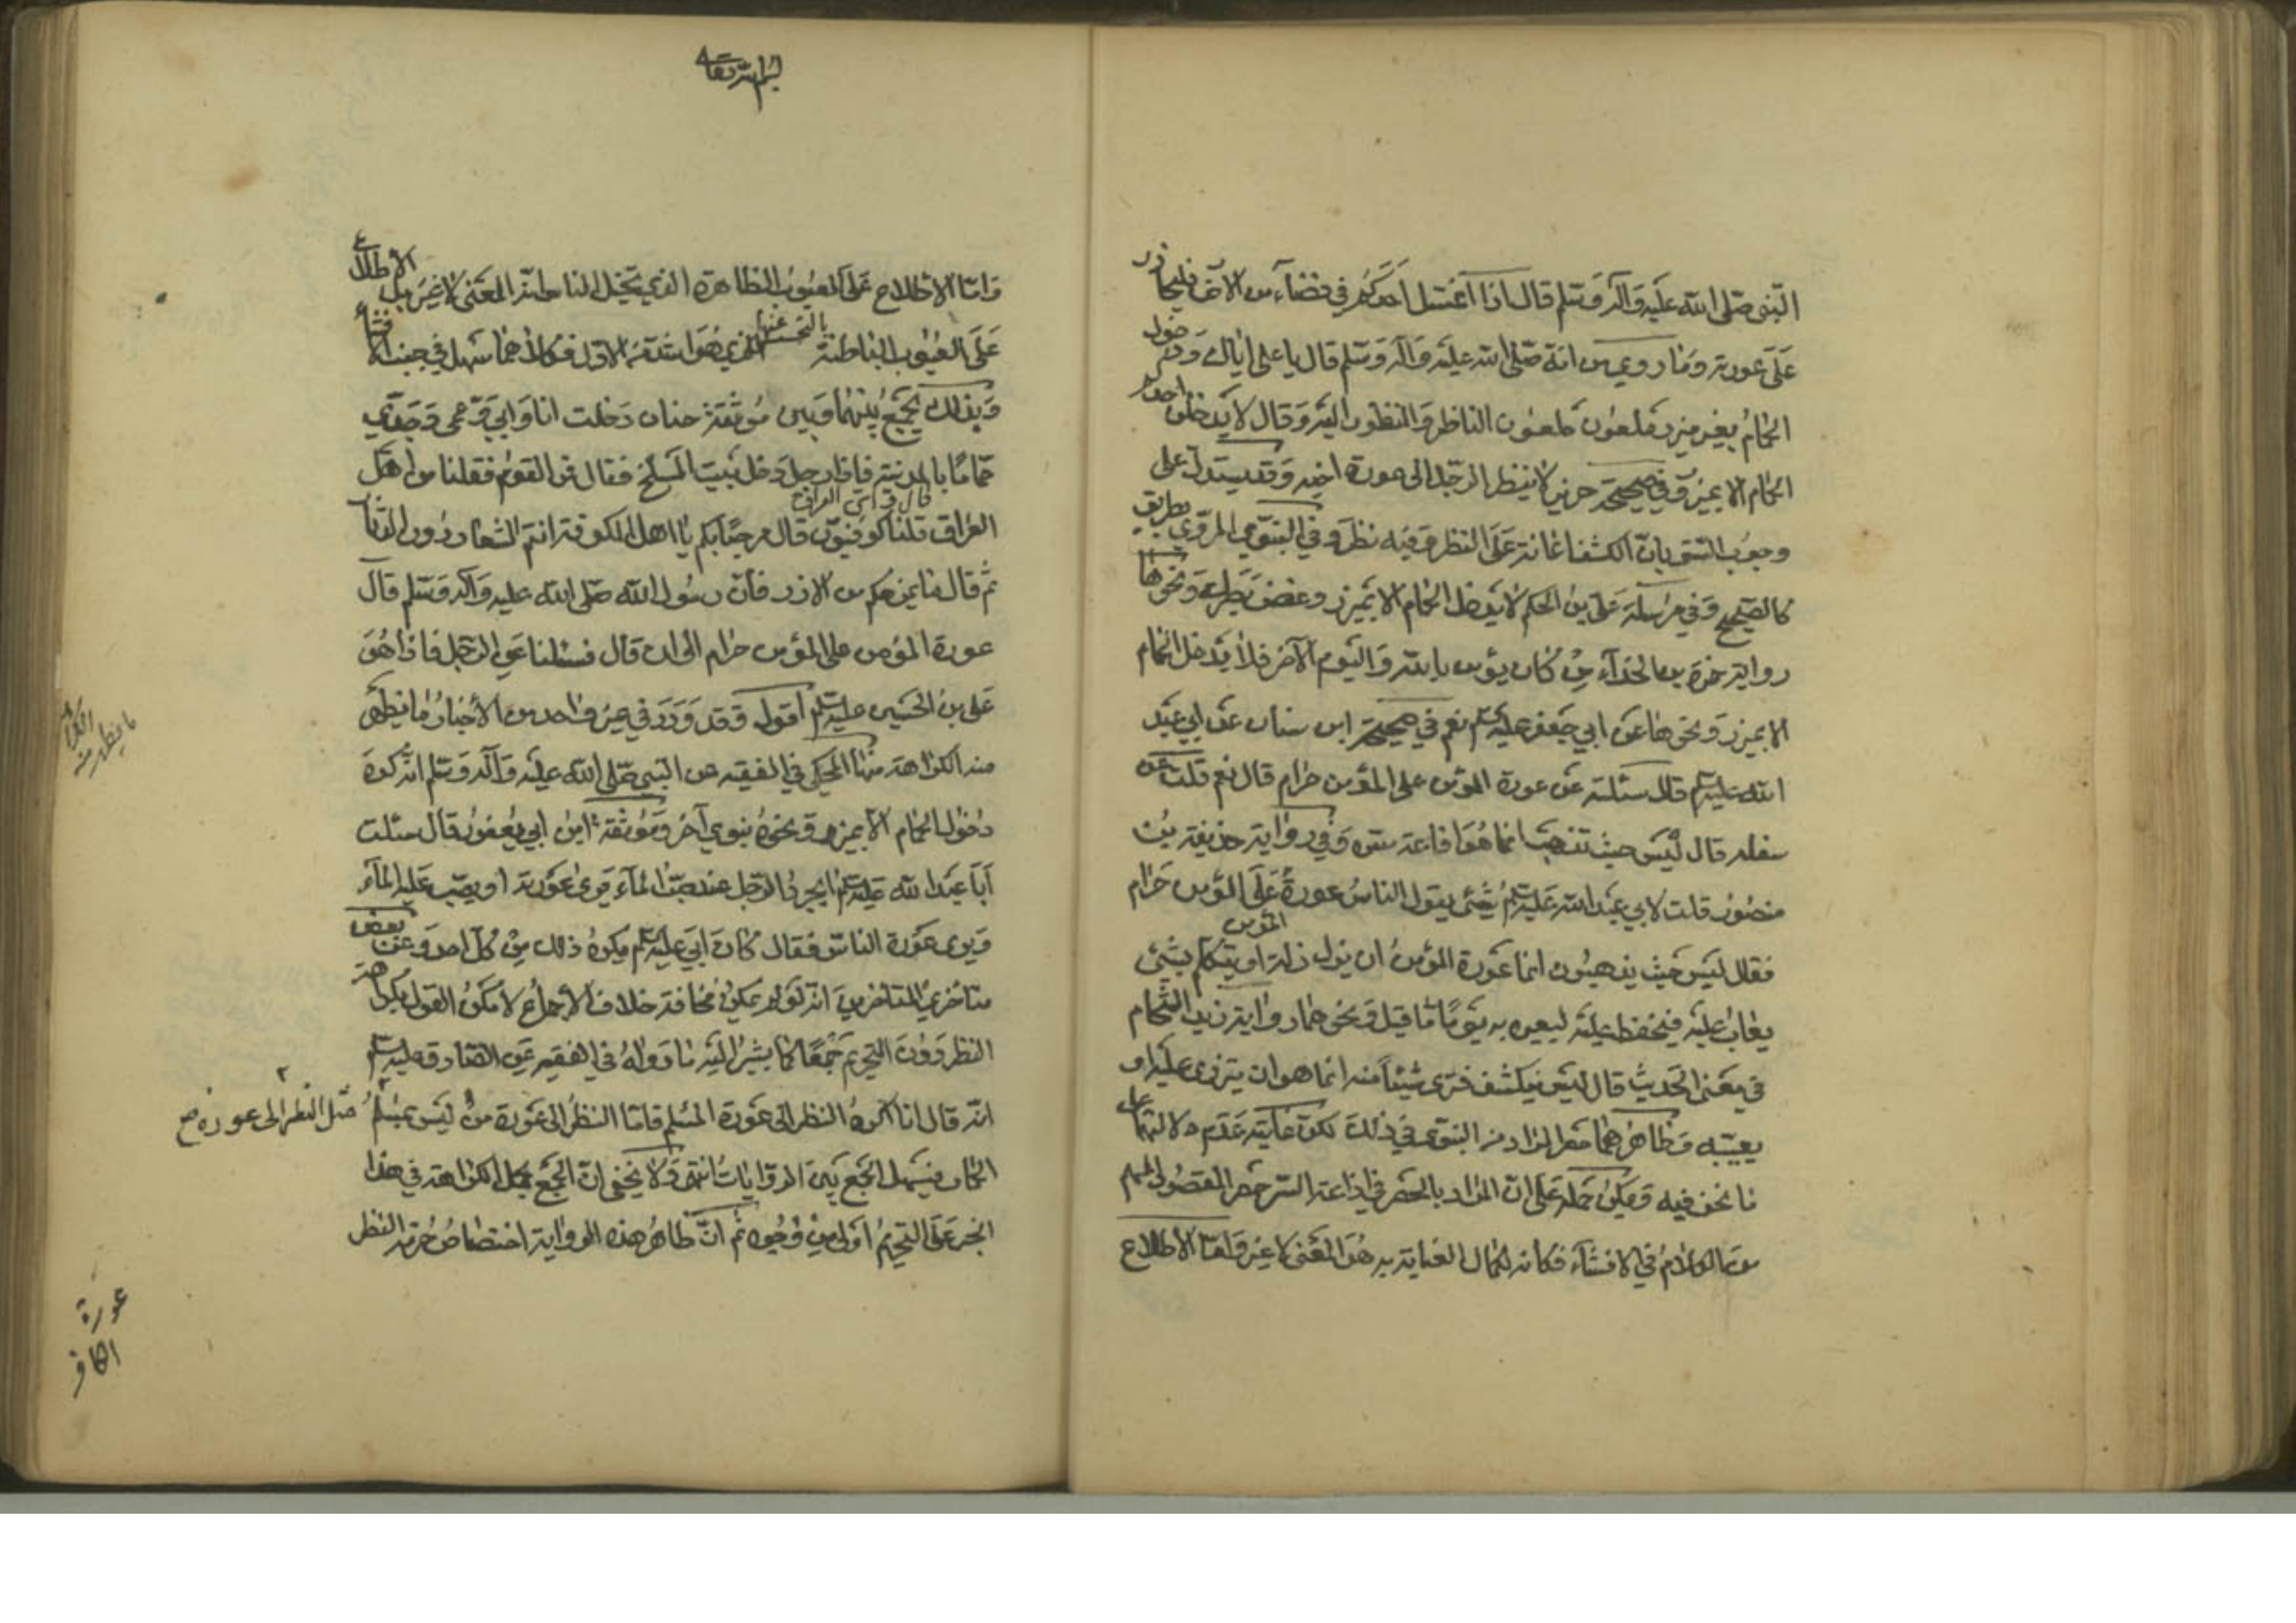 النبى صلى الله عليه وآله وسلم قال اذا اغتسل احدكم في فضآء من الارض فليحاذر
على عورته وما روي من انه صلى الله عليه وآله وسلم قال يا علي اياك ودخول
الحمام بغير ميزر ملعون ملعون الناظر والمنظور اليه وقال لا يدخلن احدكم
الحمام الا بميزر وفي صحيحة حريز لا ينظر الرجل الى عورة اخيه وقد يستدل على
وجوب الستر بان الكشف اعانة على النظر وفيه نظر وفي النبوي المروي بطريق
كالصحيح وفي مرسلة علي بن الحكم لا تدخل الحمام الا بميزر وغض بصرك ونحوها
رواية حمزة بن الحذآء من كان يؤمن بالله واليوم الآخر فلا يدخل الحمام
الا بميزر ونحوها عن ابي جعفر عليه السلم نعم في صحيحة ابن سنان عن ابي عبد
الله عليه السلم قال سئلته عن عورة المؤمن على المؤمن حرام قال نعم قلت
سفليه قال ليس حيث تذهب انما هو اذاعة ستره وفي رواية حذيفة بن
منصور قلت لابي عبد الله عليه السلم شئ يقول الناس عورة المؤمن على المؤمن حرام
فقال ليس حيث يذهبون انما عورة المؤمن ان يزل زلة او يتكلم بشئ
يعاب عليه فيحفظ عليه ليعيره به يوما ما قيل ونحوهما رواية زيد الشحام
في معنى الحديث قال ليس ينكشف فترى شيئا منه انما هو ان يزري عليه او
يعيبه وظاهرهما حصر المراد من النبوي في ذلك لكن غايته عدم دلالتهما على
ما نحن فيه ويمكن حمله على ان المراد بالحصر في اذاعة السر حصر المقصود المهم
من الكلام في الافشآء فكانه لكمال العناية به هو المعنى لا غير واما الاطلاع
بسم الله تعالى
واما الاطلاع على العيوب الظاهرة الذي تخيل الناس انه المعنى لا غير بل الاطلاع
على العيوب الباطنة بالتجسس عنها الذي هو اشد من الاول فكلاهما سهل في جنب الافشآء
وبذلك يجمع بينهما وبين موثقة حنان دخلت انا وابي وعمي وجدي
حماما بالمدينة فاذا رجل دخل بيت المسلخ فقال من القوم فقلنا من اهل
العراق قال واي العراق قلنا كوفيون قال مرحبا بكم يا اهل الكوفة انتم الشعار دون الدثار
ثم قال ما يمنعكم من الازر فان رسول الله صلى الله عليه وآله وسلم قال
عورة المؤمن على المؤمن حرام الى ان قال فسئلنا عن الرجل فاذا هو
علي بن الحسين عليه السلم اقول وقد ورد في غير واحد من الأخبار ما يظهر
منه الكراهة منها المحكي في الفقيه عن النبي صلى الله عليه وآله وسلم انه كره
دخول الحمام الا بميزر ونحوه نبوي آخر وموثقة ابن ابي يعفور قال سئلت
أبا عبد الله عليه السلم ايجرد الرجل عند صب المآء يرى عورته او يصب عليه المآء
ويرى عورة الناس فقال كان ابي عليه السلم يكره ذلك من كل احد وعن بعض
متأخري المتاخرين انه لو لم يكن مخافة خلاف الاجماع لامكن القول بكراهة
النظر دون التحريم جمعا كما يشير اليه ما رواه في الفقيه عن الصادق عليه السلم
انه قال انما اكره النظر الى عورة المسلم فاما النظر الى عورة من ليس بمسلم مثل النظر الى عورة
الحمار فيسهل الجمع بين الروايات انتهى ولا يخفى ان الجمع بحمل الكراهة في هذا
الخبر على التحريم اولى من وجوه ثم ان ظاهر هذه الرواية اختصاص حرمة النظر
ما يظهر منه الكراهة
عورة
الكافر